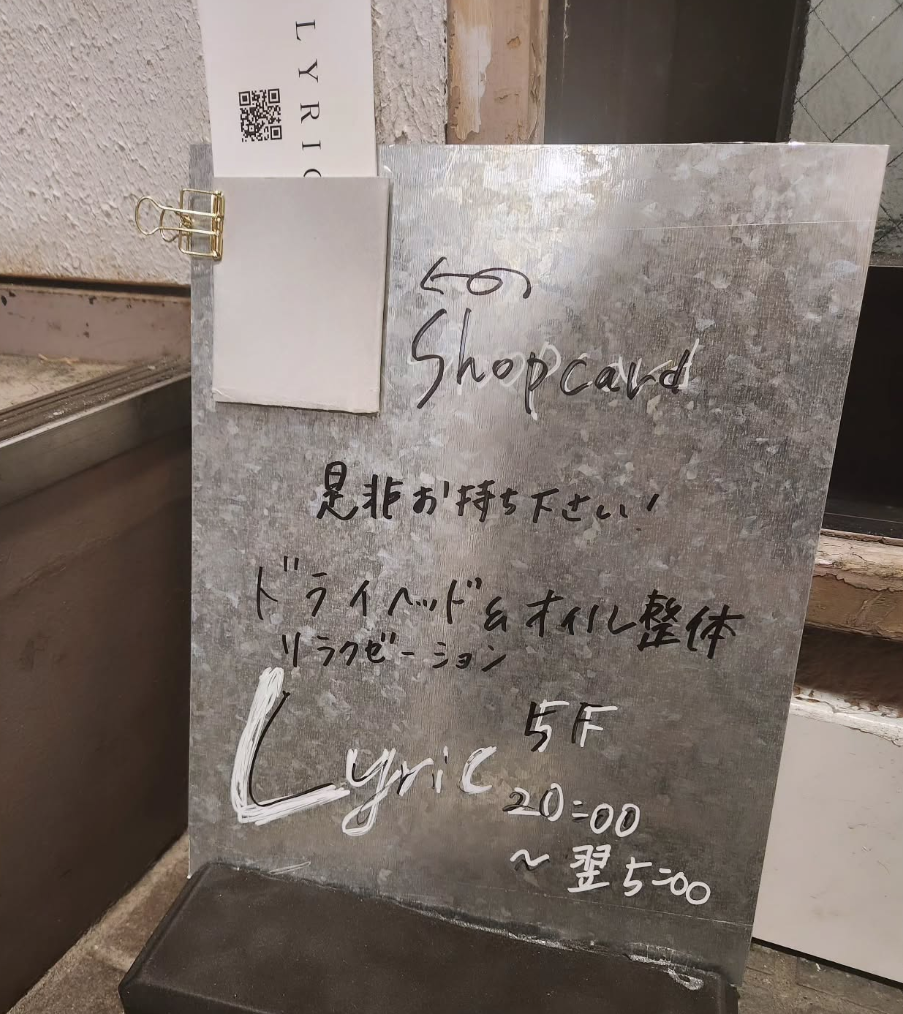 LYRIC
Shopcard
是非お持ち下さい!
ドライヘッド&オイル整体
リラクゼーション
Lyric
5F
20:00
~翌5:00